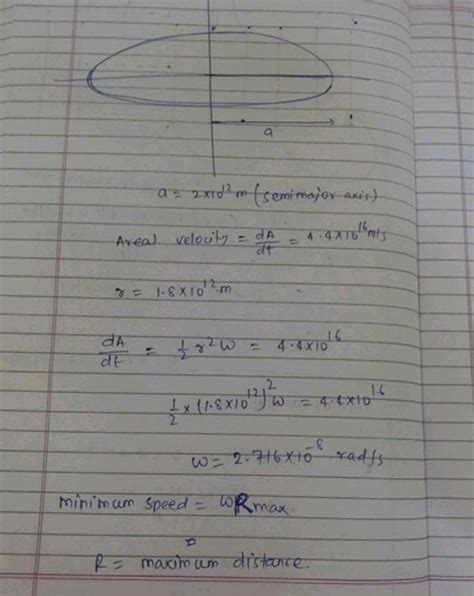 a
a = 2×10¹² m (semimajor axis)
Areal velocity = dA/dt = 4.4×10¹⁶ m/s
r = 1.8×10¹² m
dA/dt = 1/2 r²ω = 4.4×10¹⁶
1/2 × (1.8×10¹²)² ω = 4.4×10¹⁶
ω = 2.716×10⁻⁸ rad/s
minimum speed = ωRmax.
R = maximum distance.